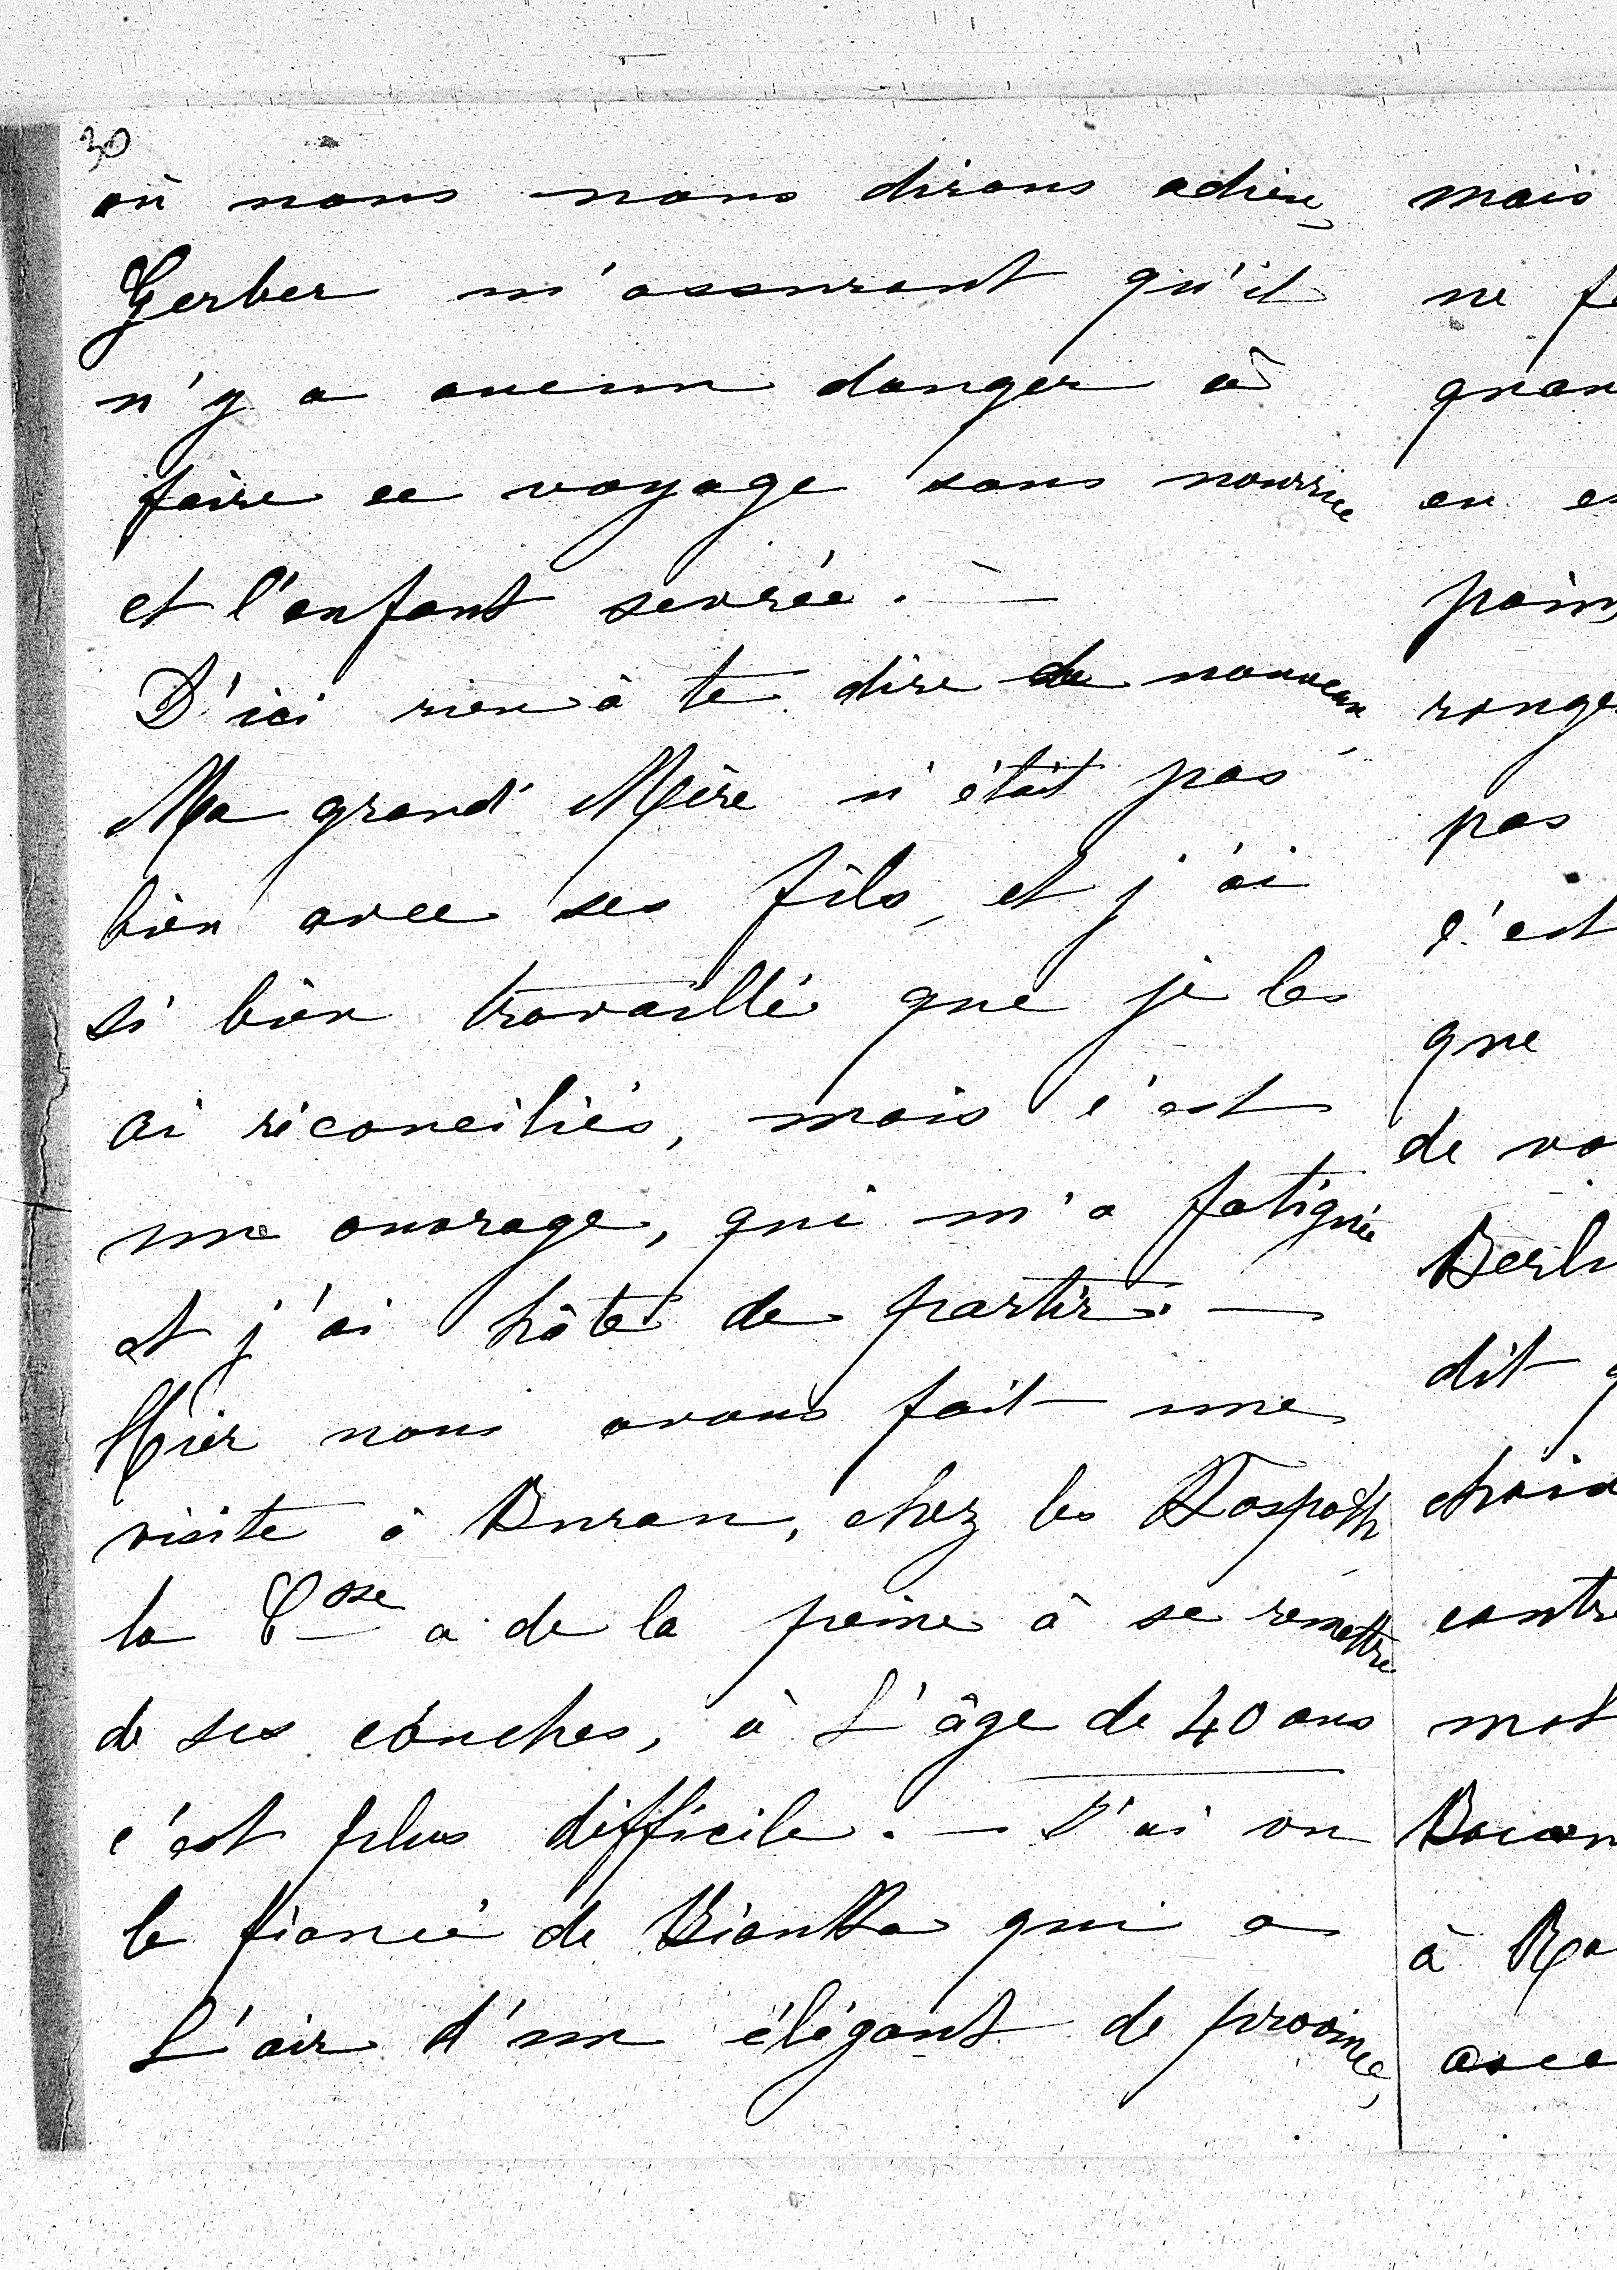 30
où nous nous dirons adieu,
Gerber m'assurant qu'il
n'y a aucun danger à
faire ce voyage sans nourrice
et l'enfant sevrée. —
D'ici rien à te dire de nouveau,
Ma grand' Mère n'était pas
bien avec ses fils, et j'ai
si bien travaillé que je les
ai réconciliés, mais c'est
une ouvrage, qui m'a fatiguée
et j'ai hâte de partir. —
Hier nous avons fait une
visite à Buran, chez les Kospoth
la Csse a de la peine à se remettre
de ses couches, à L'âge de 40 ans
c'est plus difficile. — J'ai vu
le fiancé de Bianka qui a
L'air d'un élégant de province,
mais
ne
quan
en
poin
rouge
pas
c'est
que
de vo
Berli
dit
choix
contre
mot
à Ra
avec